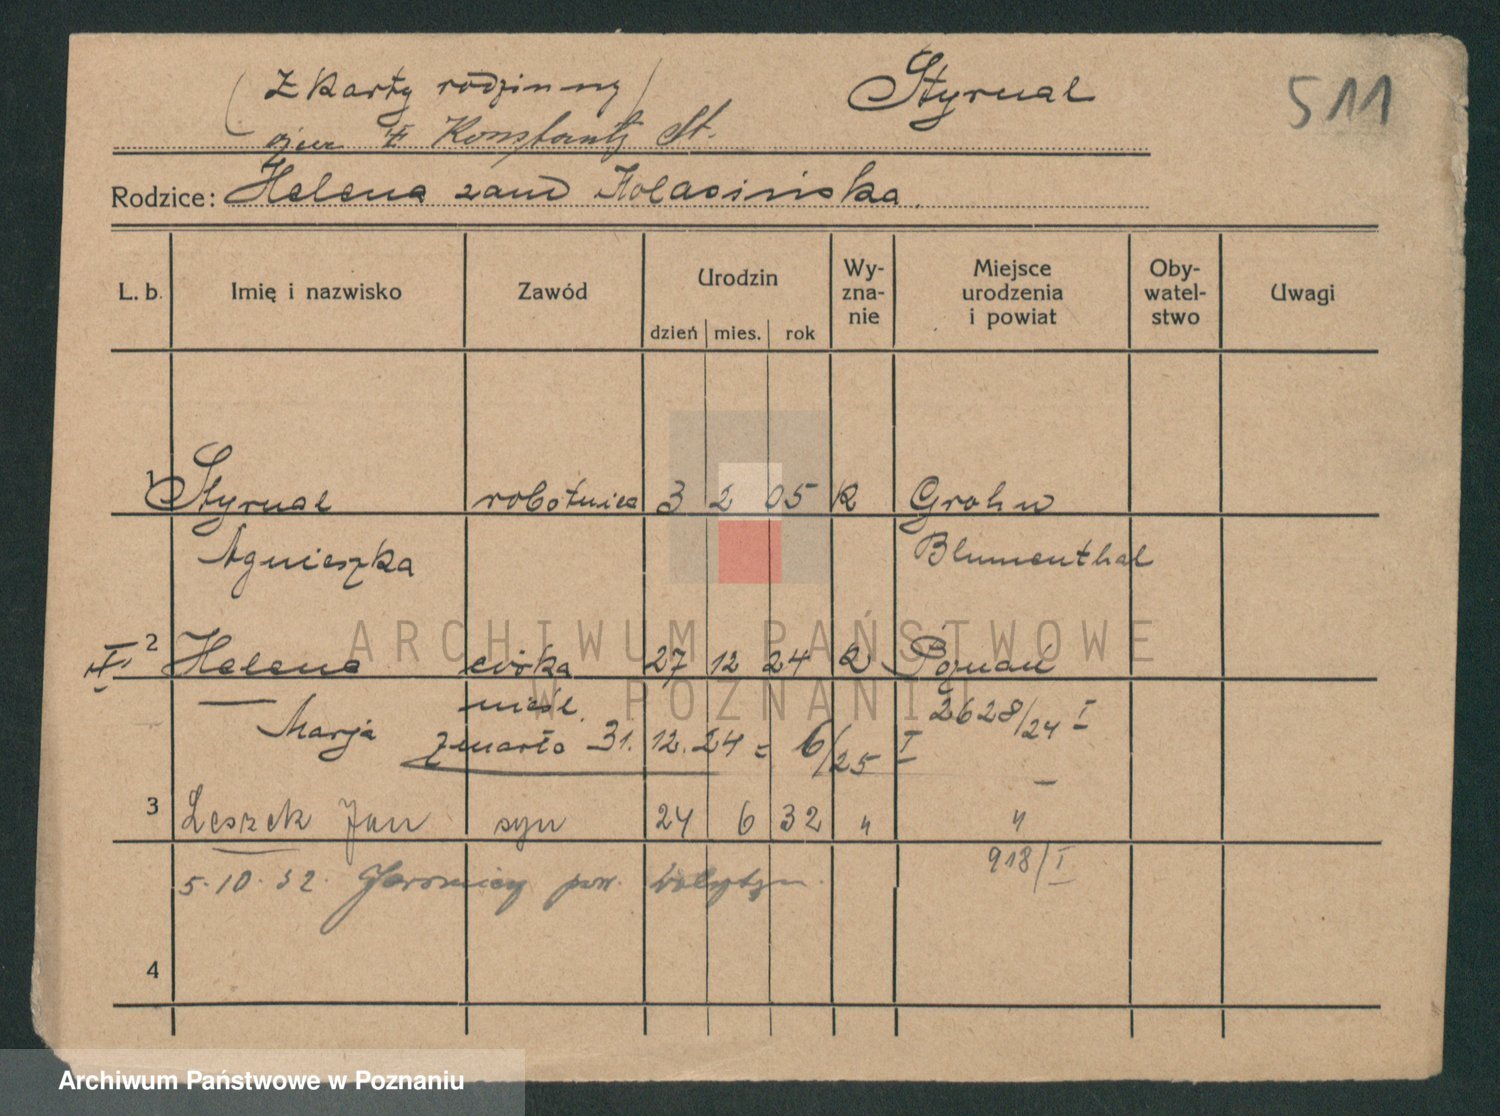 (Z karty rodzinny)
Styrnal
511
ojca ‡ Konstanty St.
Rodzice: Helena zam Kolasińska
L. b. Imię i nazwisko Zawód Urodzin Wy-zna-nie Miejsce urodzenia i powiat Oby-watel-stwo Uwagi
dzień mies. rok
1 Styrnal robotnica 3 2 05 k Grohn
Agnieszka Blumenthal
2 Helena córka 27 12 24 k Poznań
nieśl. 2628/24 I
Marja zmarła 31. 12. 24 = 6/25 I
3 Leszek Jan syn 24 6 32 " "
918/I
5.10.32. pow.
4
ARCHIWUM PAŃSTWOWE
W POZNANIU
Archiwum Państwowe w Poznaniu